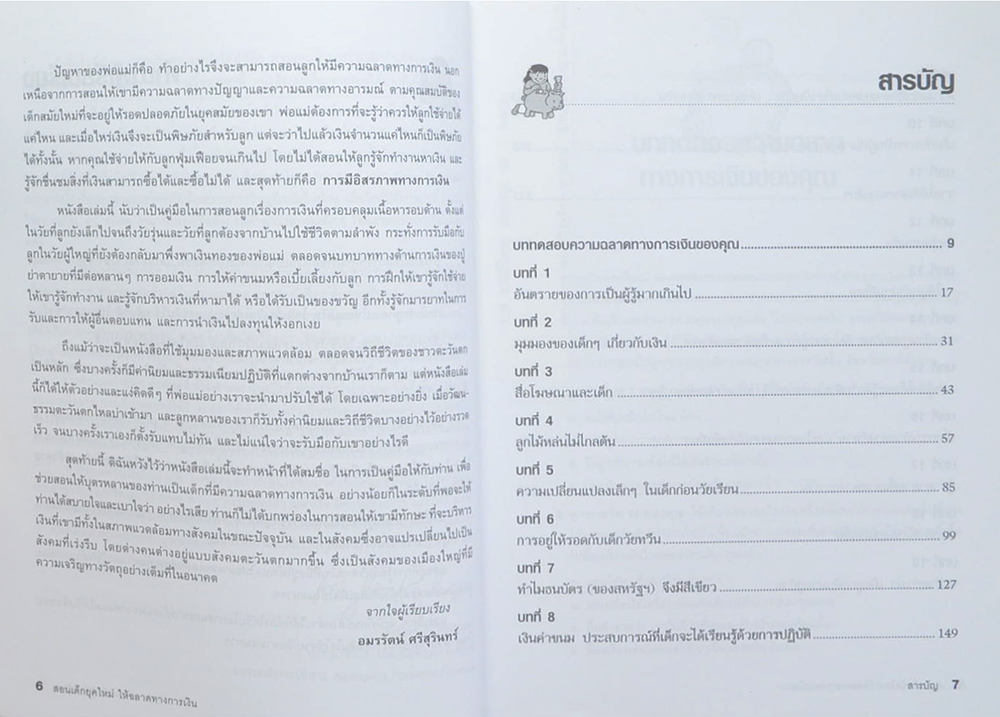 ปัญหาของพ่อแม่ก็คือ ทำอย่างไรจึงจะสามารถสอนลูกให้มีความฉลาดทางการเงิน นอก
เหนือจากการสอนให้เขามีความฉลาดทางปัญญาและความฉลาดทางอารมณ์ ตามคุณสมบัติของ
เด็กสมัยใหม่ที่จะอยู่ให้รอดปลอดภัยในยุคสมัยของเขา พ่อแม่ต้องการที่จะรู้ว่าควรให้ลูกใช้จ่ายได้
แค่ไหน และเมื่อไหร่เงินจึงจะเป็นพิษภัยสำหรับลูก แต่จะว่าไปแล้วเงินจำนวนแค่ไหนก็เป็นพิษภัย
ได้ทั้งนั้น หากคุณใช้จ่ายให้กับลูกฟุ่มเฟือยจนเกินไป โดยไม่ได้สอนให้ลูกรู้จักทำงานหาเงิน และ
รู้จักชื่นชมสิ่งที่เงินสามารถซื้อได้และซื้อไม่ได้ และสุดท้ายก็คือ การมีอิสรภาพทางการเงิน
หนังสือเล่มนี้ นับว่าเป็นคู่มือในการสอนลูกเรื่องการเงินที่ครอบคลุมเนื้อหารอบด้าน ตั้งแต่
ในวัยที่ลูกยังเล็กไปจนถึงวัยรุ่นและวัยที่ลูกต้องจากบ้านไปใช้ชีวิตตามลำพัง กระทั่งการรับมือกับ
ลูกในวัยผู้ใหญ่ที่ยังต้องกลับมาพึ่งพาเงินทองของพ่อแม่ ตลอดจนบทบาททางด้านการเงินของปู่
ย่าตายายที่มีต่อหลานๆ การออมเงิน การให้ค่าขนมหรือเบี้ยเลี้ยงกับลูก การฝึกให้เขารู้จักใช้จ่าย
ให้เขารู้จักทำงาน และรู้จักบริหารเงินที่หามาได้ หรือได้รับเป็นของขวัญ อีกทั้งรู้จักมารยาทในการ
รับและการให้ผู้อื่นตอบแทน และการนำเงินไปลงทุนให้งอกเงย
ถึงแม้ว่าจะเป็นหนังสือที่ใช้มุมมองและสภาพแวดล้อม ตลอดจนวิถีชีวิตของชาวตะวันตก
เป็นหลัก ซึ่งบางครั้งก็มีค่านิยมและธรรมเนียมปฏิบัติที่แตกต่างจากบ้านเราก็ตาม แต่หนังสือเล่ม
นี้ก็ได้ให้ตัวอย่างและแง่คิดดีๆ ที่พ่อแม่อย่างเราจะนำมาปรับใช้ได้ โดยเฉพาะอย่างยิ่ง เมื่อวัฒน-
ธรรมตะวันตกไหลบ่าเข้ามา และลูกหลานของเราก็รับทั้งค่านิยมและวิถีชีวิตบางอย่างไว้อย่างรวด
เร็ว จนบางครั้งเราเองก็ตั้งรับแทบไม่ทัน และไม่แน่ใจว่าจะรับมือกับเขาอย่างไรดี
สุดท้ายนี้ ดิฉันหวังไว้ว่าหนังสือเล่มนี้จะทำหน้าที่ได้สมชื่อ ในการเป็นคู่มือให้กับท่าน เพื่อ
ช่วยสอนให้บุตรหลานของท่านเป็นเด็กที่มีความฉลาดทางการเงิน อย่างน้อยก็ในระดับที่พอจะให้
ท่านได้สบายใจและเบาใจว่า อย่างไรเสีย ท่านก็ไม่ได้บกพร่องในการสอนให้เขามีทักษะ ที่จะบริหาร
เงินที่เขามีทั้งในสภาพแวดล้อมทางสังคมในขณะปัจจุบัน และในสังคมซึ่งอาจแปรเปลี่ยนไปเป็น
สังคมที่เร่งรีบ โดยต่างคนต่างอยู่แบบสังคมตะวันตกมากขึ้น ซึ่งเป็นสังคมของเมืองใหญ่ที่มี
ความเจริญทางวัตถุอย่างเต็มที่ในอนาคต
จากใจผู้เรียบเรียง
อมรรัตน์ ศรีสุรินทร์
6 สอนเด็กยุคใหม่ ให้ฉลาดทางการเงิน
สารบัญ
บททดสอบความฉลาดทางการเงินของคุณ 9
บทที่ 1
อันตรายของการเป็นผู้รู้มากเกินไป 17
บทที่ 2
มุมมองของเด็กๆ เกี่ยวกับเงิน 31
บทที่ 3
สื่อโฆษณาและเด็ก 43
บทที่ 4
ลูกไม้หล่นไม่ไกลต้น 57
บทที่ 5
ความเปลี่ยนแปลงเล็กๆ ในเด็กก่อนวัยเรียน 85
บทที่ 6
การอยู่ให้รอดกับเด็กวัยทวีน 99
บทที่ 7
ทำไมธนบัตร (ของสหรัฐฯ) จึงมีสีเขียว 127
บทที่ 8
เงินค่าขนม ประสบการณ์ที่เด็กจะได้เรียนรู้ด้วยการปฏิบัติ 149
สารบัญ 7